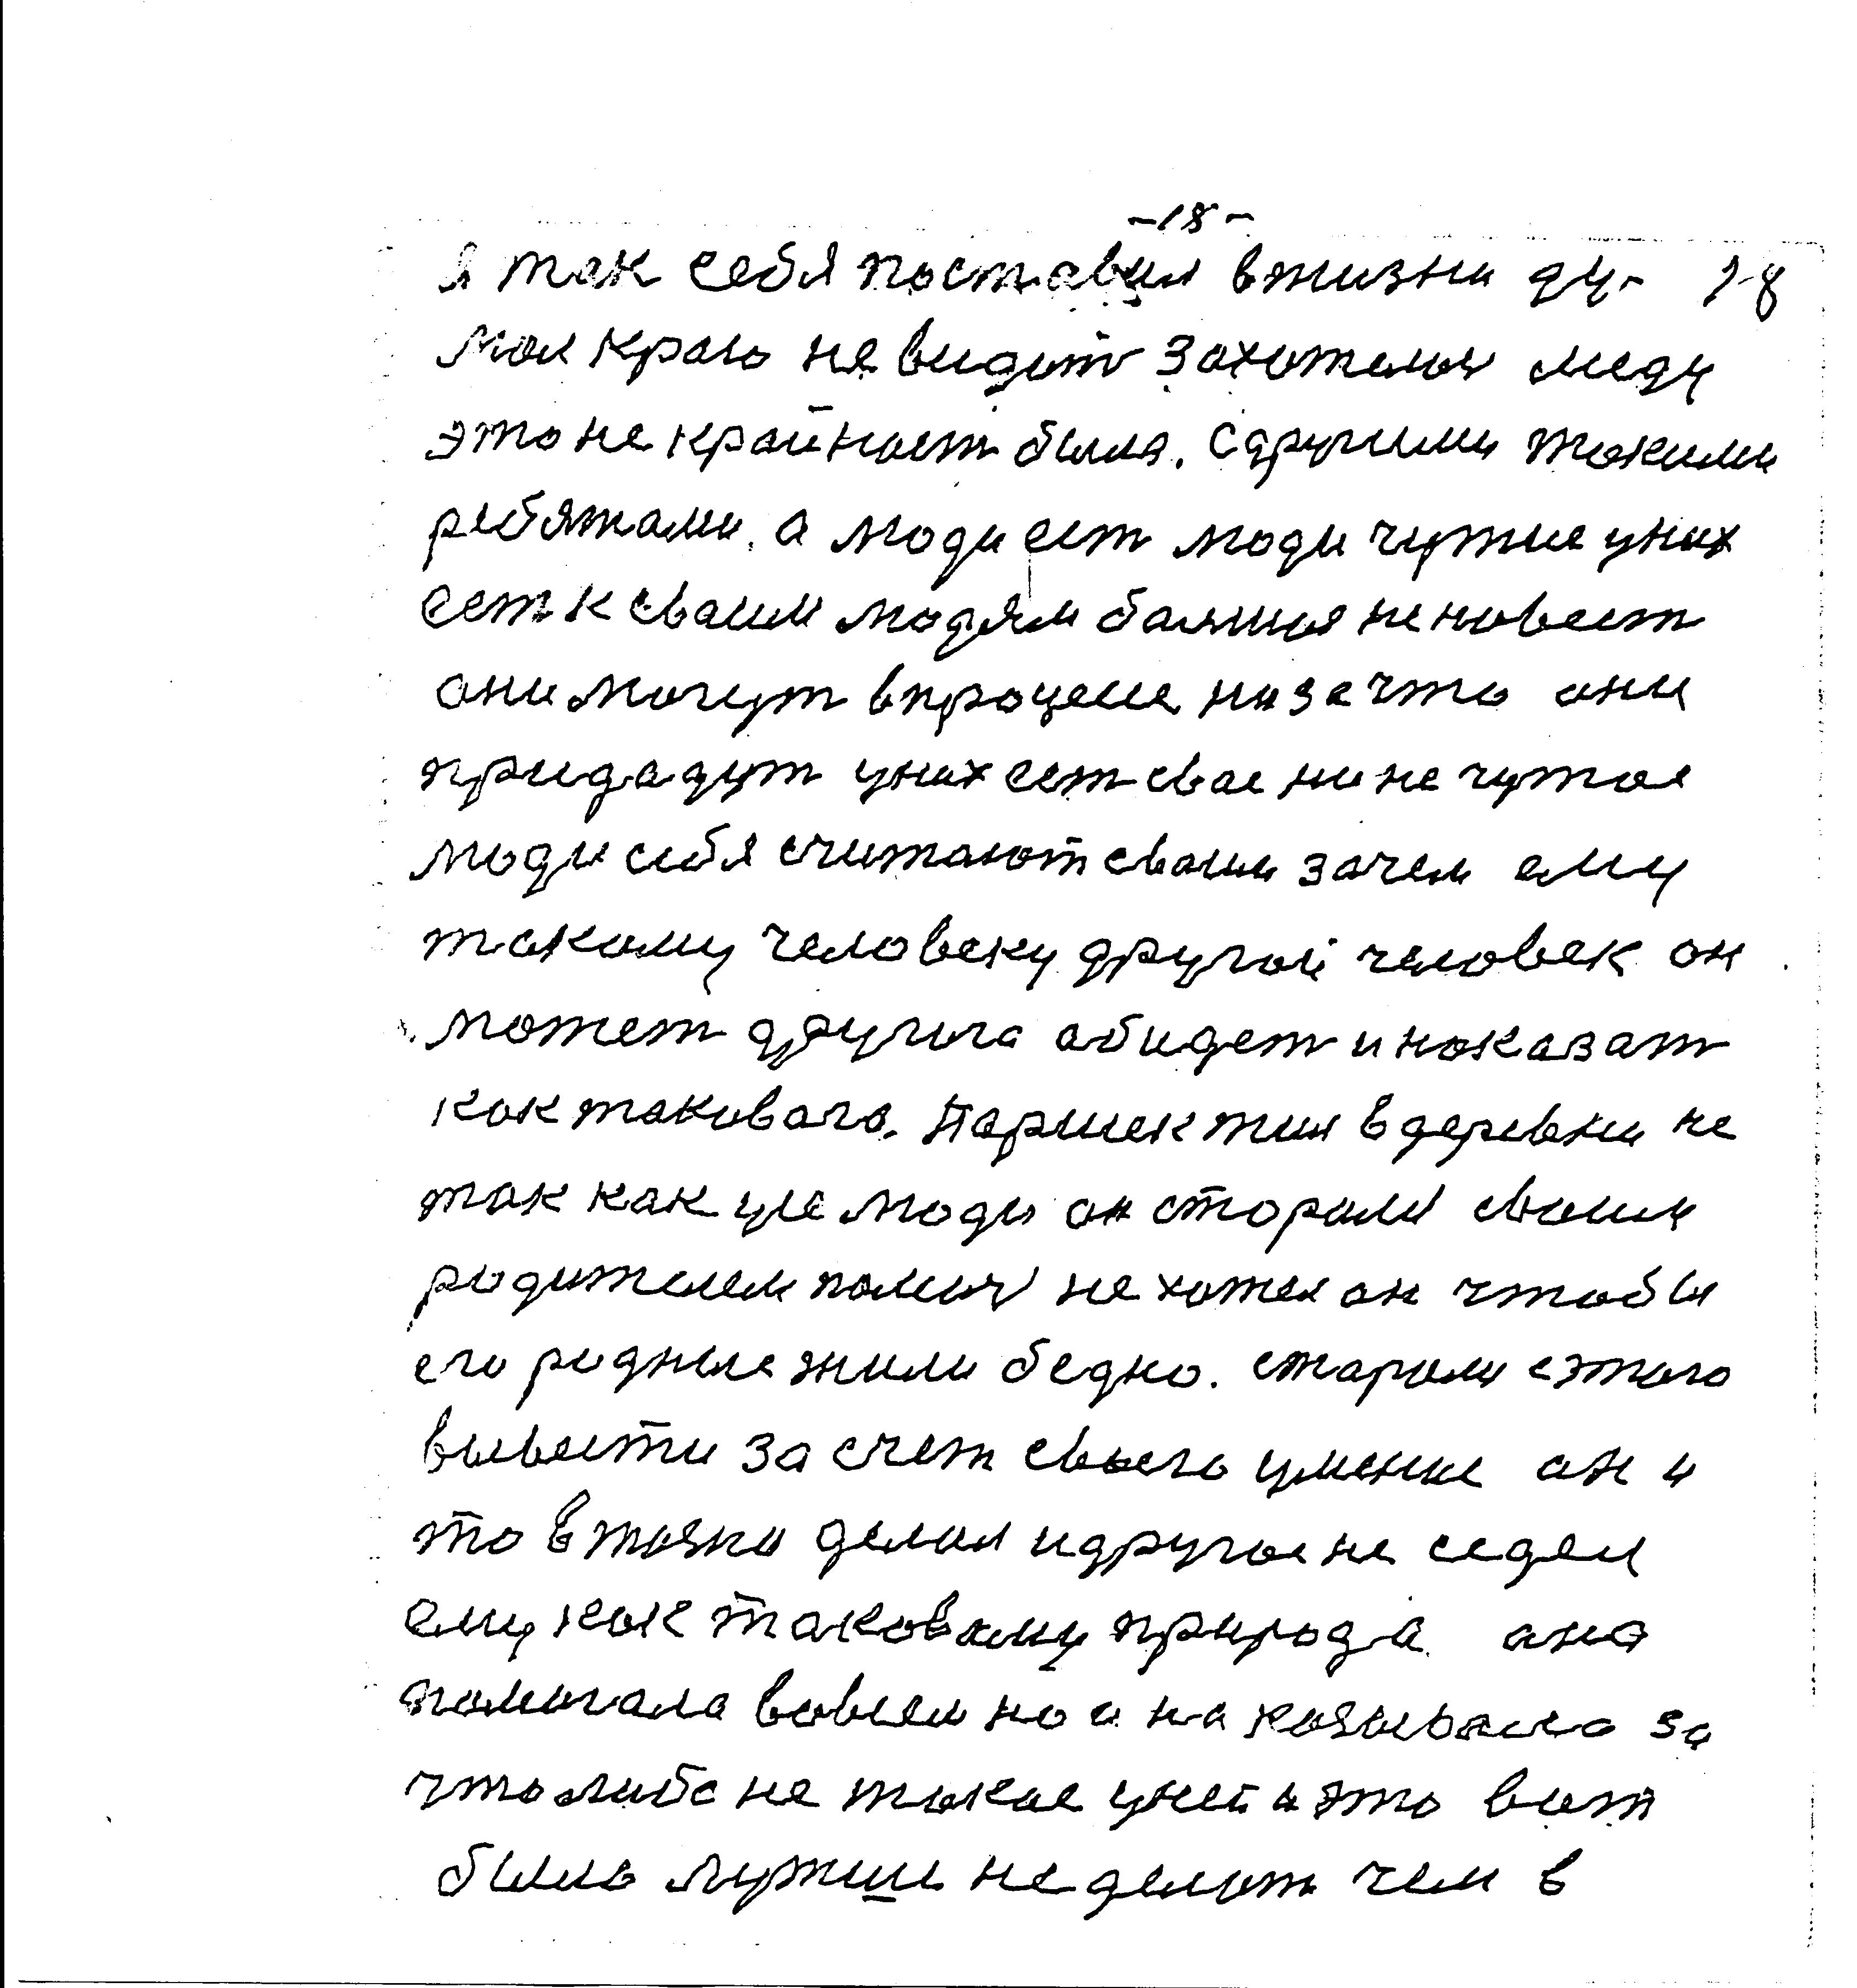 -18-
я так себя поставил в жизни ду- 18
мал краю не видит захотелоя меду
это не крайност была. Сдругими такими
ребятами. а люди ест люди чужие уних
ест к сваим людям баязния ненавест
они могут впроцесе низачто они
придадут уних ест свае ни не чужое
люди себя считают сваими зачем ему
такому человеку другой человек он
может другога абидет и наказат
как таковаго. Паршек жил вдеревни не
так как усе люди он старалс сваим
родителем помоч не хотел он чтобы
его родные жили бедно. старалс сэтаго
вывести за счет своего умение он и
то втаяни делал идругое не седел
ему как таковаму природа ана
помогала вовсем но и наказывала за
что либо не такое уней и это вот
было лутши неделат чем в